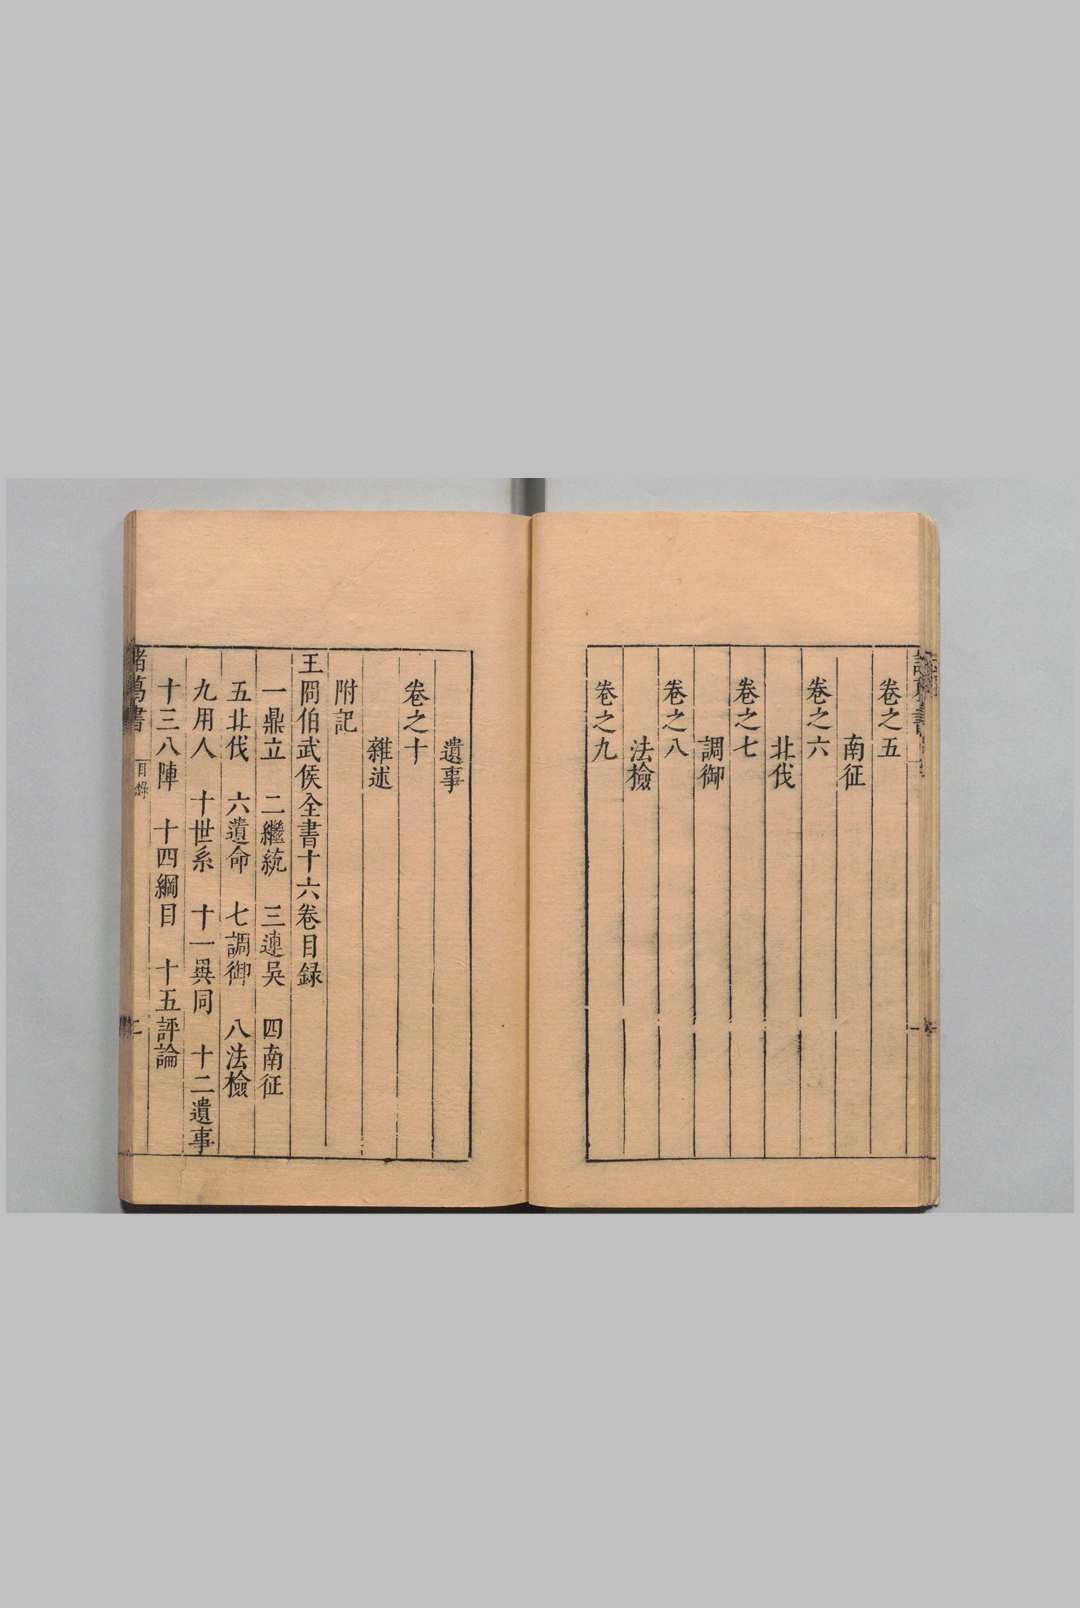 卷之五
南征
卷之六
北伐
卷之七
調御
卷之八
法檢
卷之九
遺事
卷之十
雜述
附記
王岡伯武侯全書十六卷目録
一鼎立　二繼統　三連吳　四南征
五北伐　六遺命　七調御　八法檢
九用人　十世系　十一異同　十二遺事
十三八陣　十四綱目　十五評論
諸葛書
目錄
二